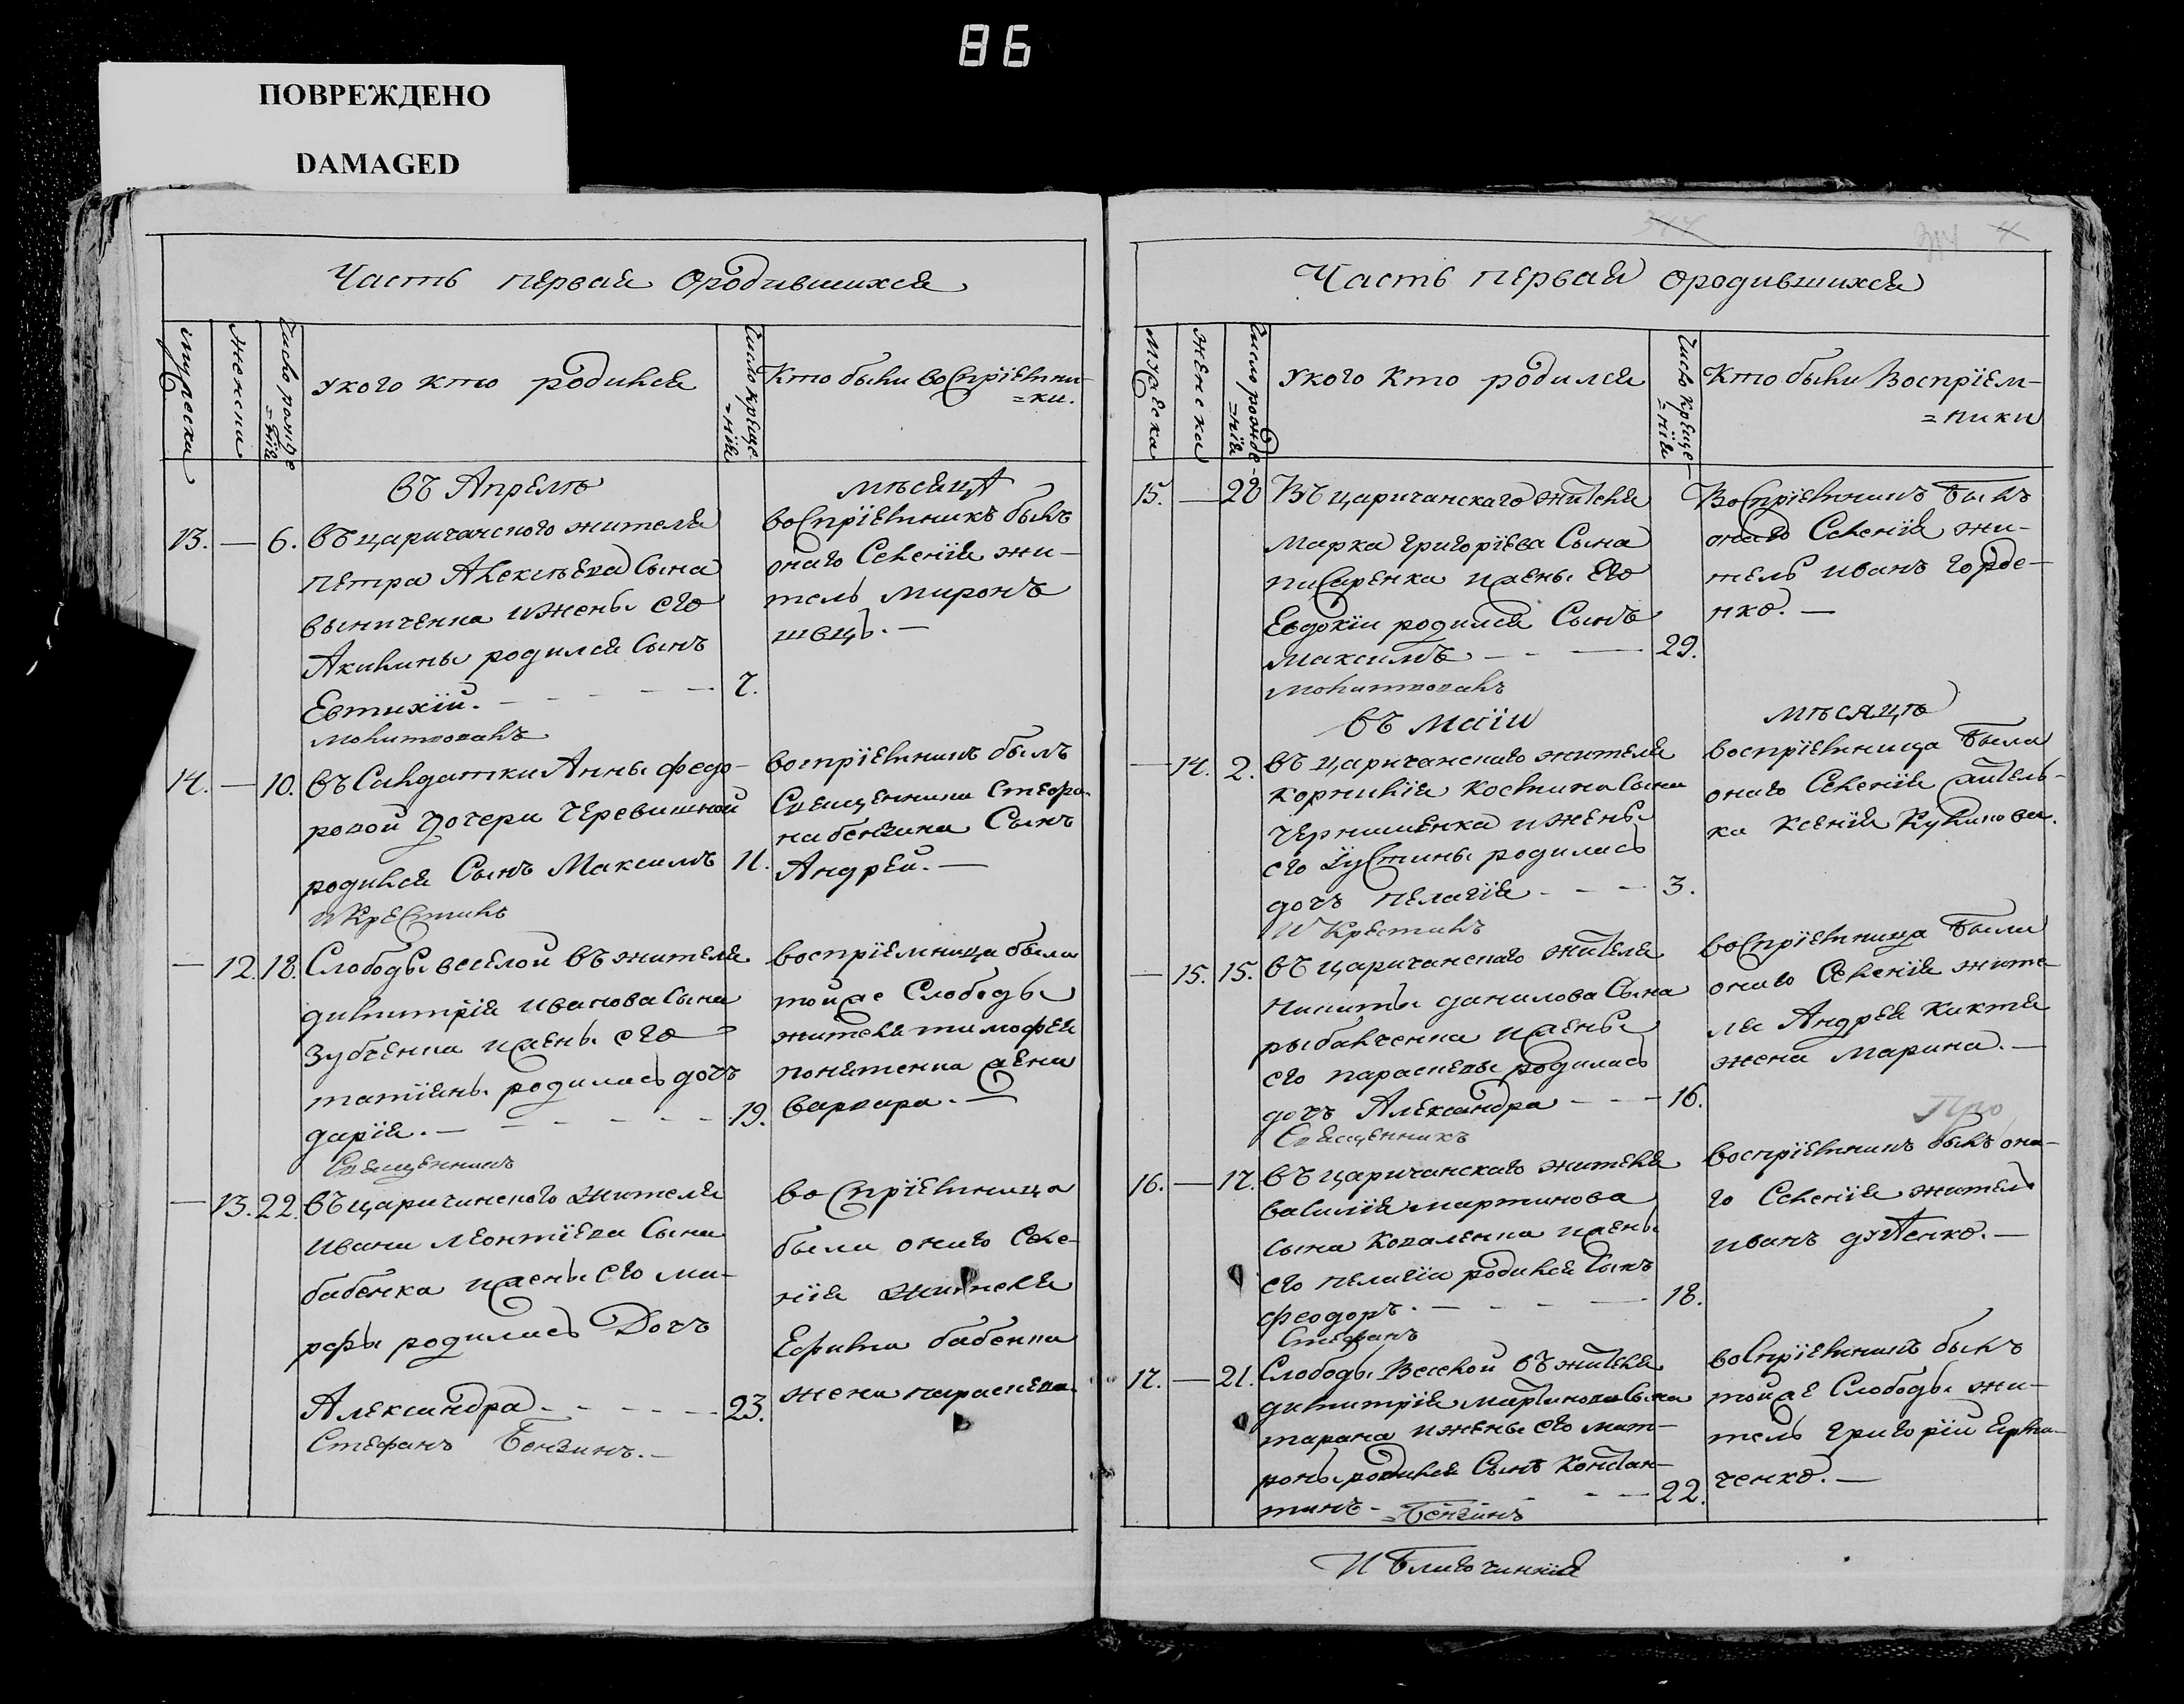 86
ПОВРЕЖДЕНО
DAMAGED
Часть первая ородившихся
мужеска
женска
число рожде
=нія
укого кто родился
число креще-
=нія
Кто были воспріемни-
=ки.
въ Апреле
месяца
13. — 6. въ царичанского жителя
петра Алексеева Сына
выниченка ижены его
Акилины родился Сынъ
Евтихій. - - - - - 7.
молитвовалъ
воспріемникъ былъ
онаго Селенія жи-
тель миронъ
швцъ. —
14. — 10. въ Салдатки Анны федо-
ровой дочери черевишной
родился Сынъ Максимъ 11.
и Крестилъ
воспріемникъ былъ
Священника Стефа-
на бензина Сынъ
Андрей. —
— 12. 18. Слободы веселой въ жителя
дмитрія иванова Сына
зубченка ижены его
татіяны родилась дочъ
дарія. — - - - - - 19.
Священникъ
воспріемница была
тойже Слободы
жителя тимофея
понятенка жена
варвара. —
— 13. 22. въ царичинского жителя
ивана леонтіева Сына
бабенка ижены его ма-
рфы родилась Дочъ
Александра - - - - - 23.
Стефанъ Бензинъ. —
воспріемница
была онаго Селе-
нія жителя
Ефима бабенка
жена параскева.
314
314 4
Часть первая ородившихся
мужеска
женска
число рожде-
=нія
укого кто родился
число креще-
=нія
Кто были Воспріем-
=ники
15. — 28 Въ царичанскаго жителя
марка григоріева Сына
писаренка ижены Его
Евдокіи родился Сынъ
максимъ - - — 29.
молитвовалъ
Воспріемникъ былъ
онаго Селенія жи-
тель иванъ горде-
нко. —
въ маіи
месяце
— 14. 2. въ царичанского жителя
корнилія костина Сына
чернишенка ижены
его іустины родилась
дочъ пелагія - - - 3.
и Крестилъ
воспріемница была
онаго Селенія жітель-
ка ксенія Куликова.
— 15. 15. въ царичанскаго жителя
никиты данилова Сына
рыбалченка ижены
его параскевы родилась
дочъ Александра - - - 16.
Священникъ
воспріемница была
онаго Селенія жите-
ля Андрея киктя
жена марина. —
Про
16. — 17. въ царичанскаго жителя
василія мартинова
сына коваленка ижены
его пелагіи родился Сынъ
феодоръ. — - - - — 18.
Стефанъ
воспріемникъ былъ она-
го Селенія житель
иванъ дутенко. —
17. — 21. Слободы Веселой въ жителя
димитрія мартинова Сына
тарана ижены его мат-
роны родился Сынъ констан-
тинъ - =Бензинъ - — 22.
воспріемникъ былъ
тойже Слободы жи-
тель григорій ерма-
ченко. —
И Благочинній